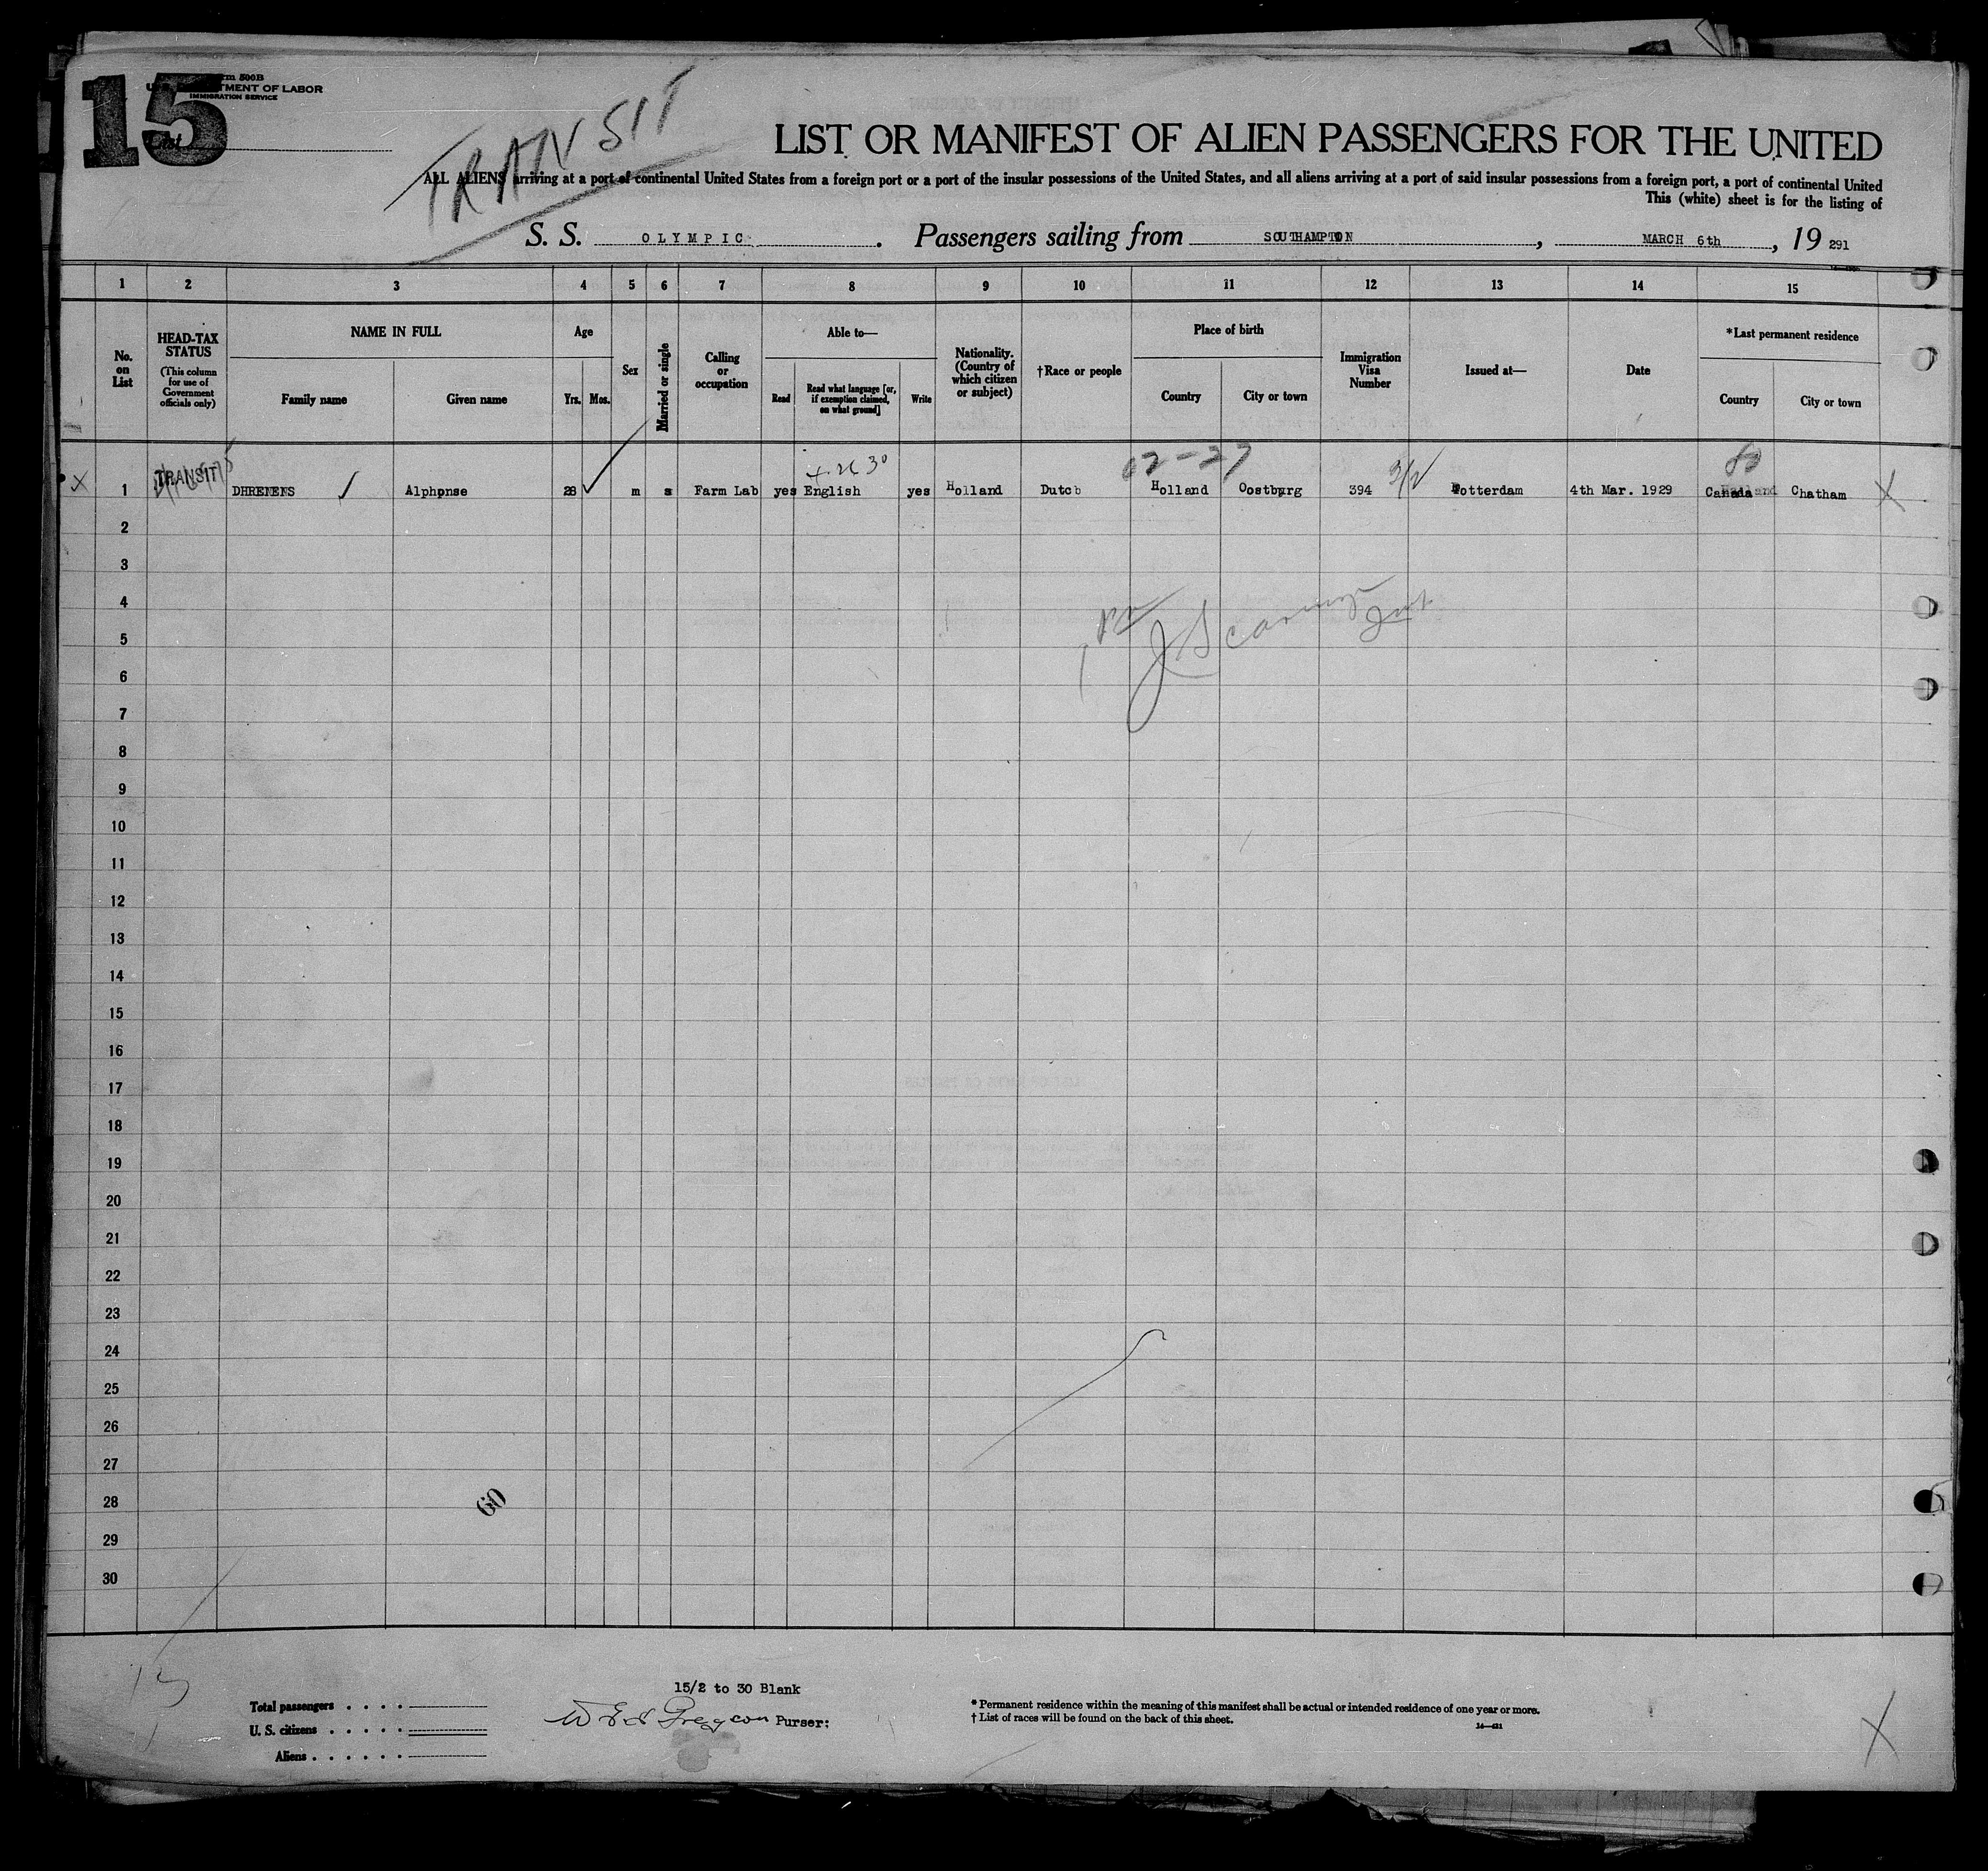 15
Form 500B
U. S. DEPARTMENT OF LABOR
IMMIGRATION SERVICE
List
TRANSIT
LIST OR MANIFEST OF ALIEN PASSENGERS FOR THE UNITED
ALL ALIENS arriving at a port of continental United States from a foreign port or a port of the insular possessions of the United States, and all aliens arriving at a port of said insular possessions from a foreign port, a port of continental United
This (white) sheet is for the listing of
S. S. OLYMPIC. Passengers sailing from SOUTHAMPTON, MARCH 6th, 19 291
1 2 3 4 5 6 7 8 9 10 11 12 13 14 15
No. on List
HEAD-TAX STATUS
(This column for use of Government officials only)
NAME IN FULL
Family name Given name
Age
Yrs. Mos.
Sex
Married or single
Calling or occupation
Able to—
Read
Read what language [or, if exemption claimed, on what ground]
Write
Nationality. (Country of which citizen or subject)
†Race or people
Place of birth
Country City or town
Immigration Visa Number
Issued at—
Date
*Last permanent residence
Country City or town
X 1 TRANSIT Alphonse 28 m s Farm Lab yes English yes Holland Dutch Holland Oostburg 394 Rotterdam 4th Mar. 1929 Canada Chatham X
02-27
2
3
4
5
6
7
8
9
10
11
12
13
14
15
16
17
18
19
20
21
22
23
24
25
26
27
28
29
30
60
15/2 to 30 Blank
Purser:
Total passengers
U. S. citizens
Aliens
* Permanent residence within the meaning of this manifest shall be actual or intended residence of one year or more.
† List of races will be found on the back of this sheet.
X